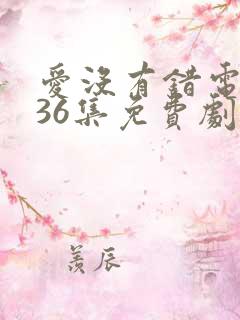 愛沒有錯電
36集免費劇
羨辰